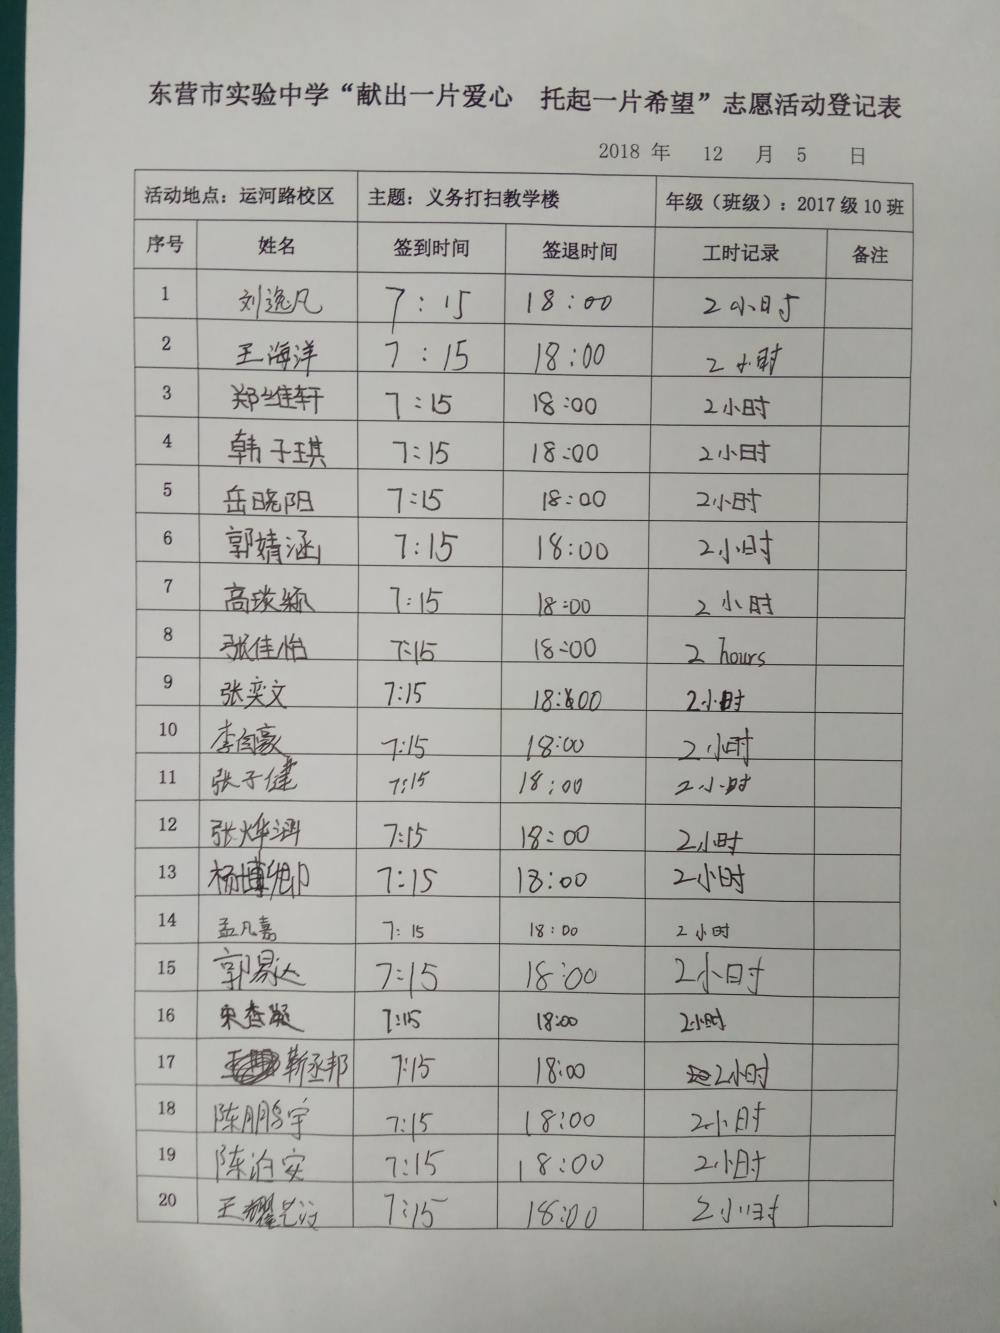 东营市实验中学“献出一片爱心 托起一片希望”志愿活动登记表
2018 年 12 月 5 日
活动地点：运河路校区 主题：义务打扫教学楼 年级（班级）：2017 级 10 班
序号 姓名 签到时间 签退时间 工时记录 备注
1 刘逸凡 7:15 18:00 2小时
2 王海洋 7:15 18:00 2小时
3 郑维轩 7:15 18:00 2小时
4 韩子琪 7:15 18:00 2小时
5 岳晓阳 7:15 18:00 2小时
6 郭婧涵 7:15 18:00 2小时
7 高琰颖 7:15 18:00 2小时
8 张佳怡 7:15 18:00 2 hours
9 张奕文 7:15 18:00 2小时
10 李自豪 7:15 18:00 2小时
11 张子健 7:15 18:00 2小时
12 张烨涵 7:15 18:00 2小时
13 杨博卿 7:15 18:00 2小时
14 孟凡嘉 7:15 18:00 2小时
15 郭易达 7:15 18:00 2小时
16 7:15 18:00 2小时
17 靳丞邦 7:15 18:00 2小时
18 陈鹏宇 7:15 18:00 2小时
19 陈泊安 7:15 18:00 2小时
20 7:15 18:00 2小时